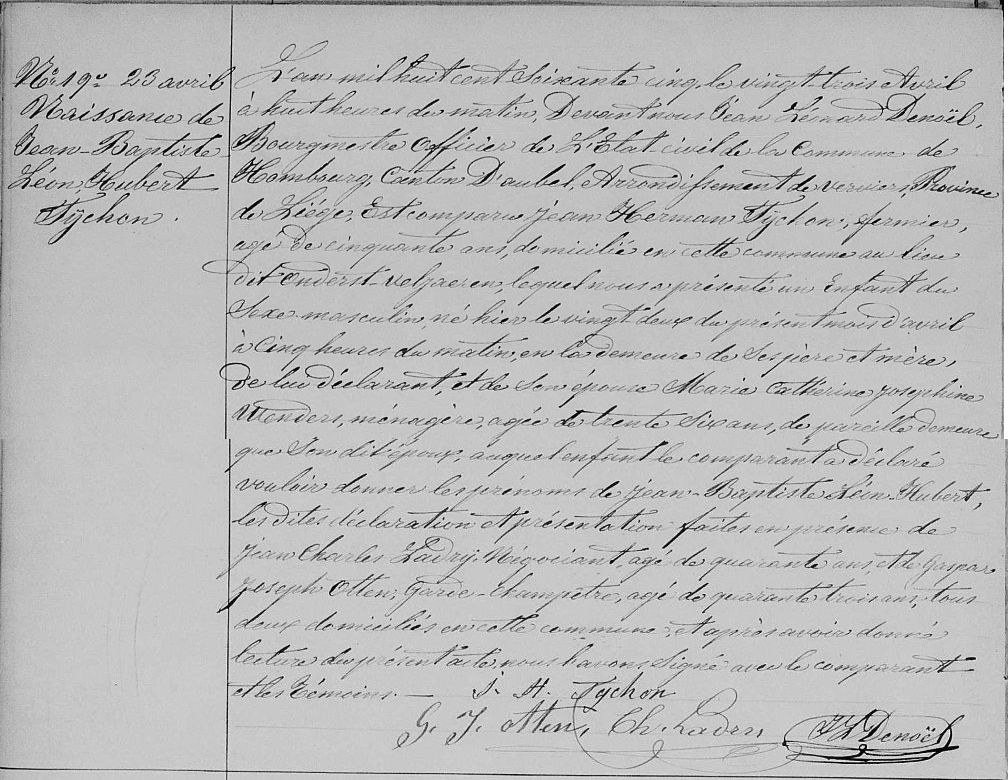 N° 19. 23 avril
Naissance de
Jean-Baptiste
Léon Hubert
Tychon.
L'an mil huit cent Soixante cinq, le vingt-trois Avril
à huit heures du matin, Devant nous Jean Léonard Denoël,
Bourgmestre Officier de L'Etat civil de la Commune de
Hombourg, Canton D'aubel, Arrondissement de verviers, Province
de Liége, Est comparu Jean Herman Tychon, fermier,
agé de cinquante ans, domicilié en cette commune au lieu
dit Onderst-velgaeren, lequel nous a présenté un Enfant du
Sexe masculin, né hier le vingt deux du présent mois d'avril
à Cinq heures du matin, en la demeure de Ses père et mère,
De lui déclarant, et de Son épouse Marie Catherine Josephine
Wenders, ménagère, agée de trente Six ans, de pareille demeure
que Son dit époux, auquel enfant le comparant a déclaré
vouloir donner les prénoms de Jean-Baptiste Léon-Hubert,
les dites déclaration et présentation faites en présence de
Jean Charles Ladry, Négociant, agé de quarante ans, et de Gaspar
Joseph Otten, Garde-Champêtre, agé de quarante trois ans, tous
deux domiciliés en cette commune, et après avoir donné
lecture du présent acte, nous l'avons Signé avec le comparant
et les Témoins. —
J. H. Tychon
G. J. Otten, Ch. Ladry JL Denoël